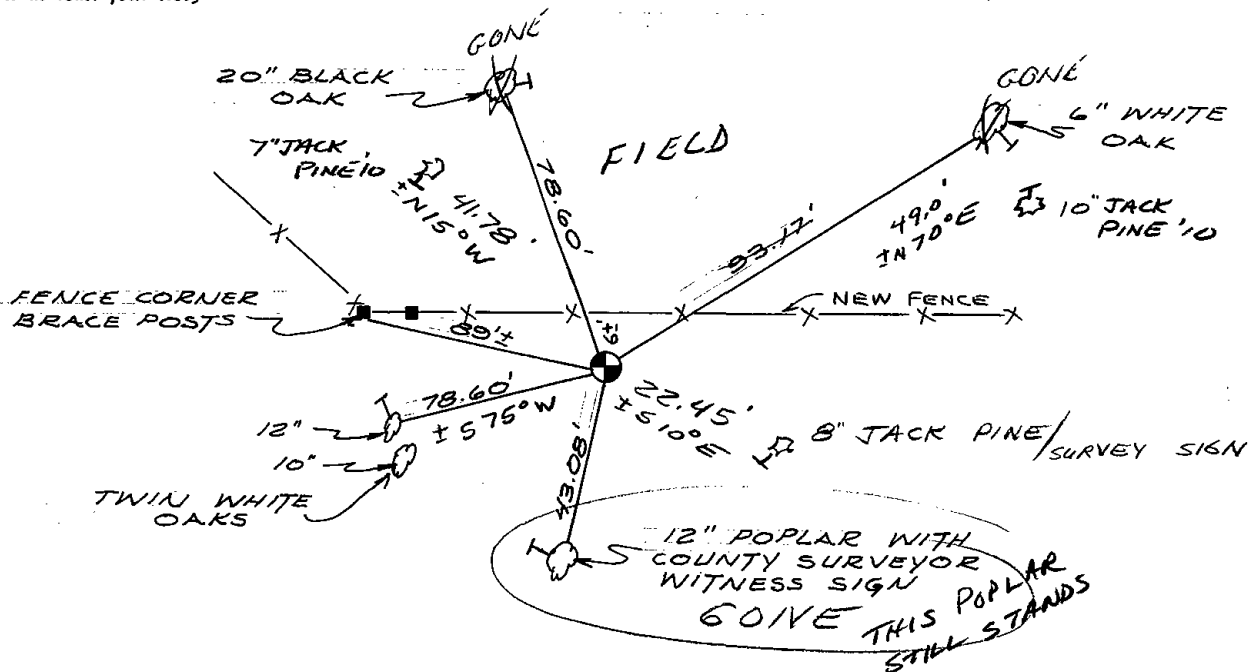 GONE
GONE
20" BLACK
OAK
6" WHITE
OAK
7" JACK
PINE '10
FIELD
41.78'
± N15°W
78.60'
93.17'
49.0'
± N 70°E
10" JACK
PINE '10
FENCE CORNER
BRACE POSTS
NEW FENCE
89'±
9'±
78.60'
± S 75°W
22.45'
± S 10°E
12"
10"
TWIN WHITE
OAKS
8" JACK PINE/SURVEY SIGN
43.08'
12" POPLAR WITH
COUNTY SURVEYOR
WITNESS SIGN
GONE
THIS POPLAR
STILL STANDS